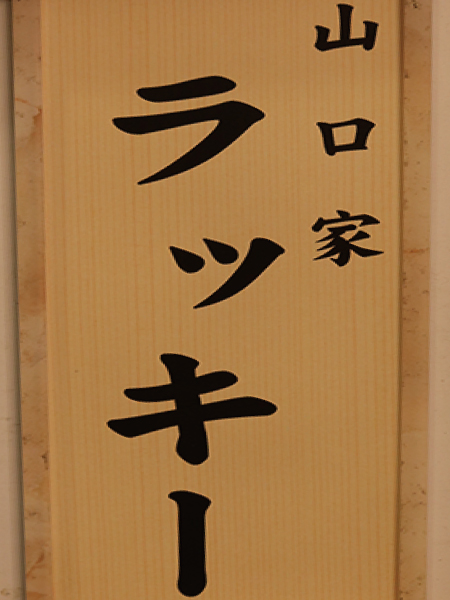 山口家
ラッキー